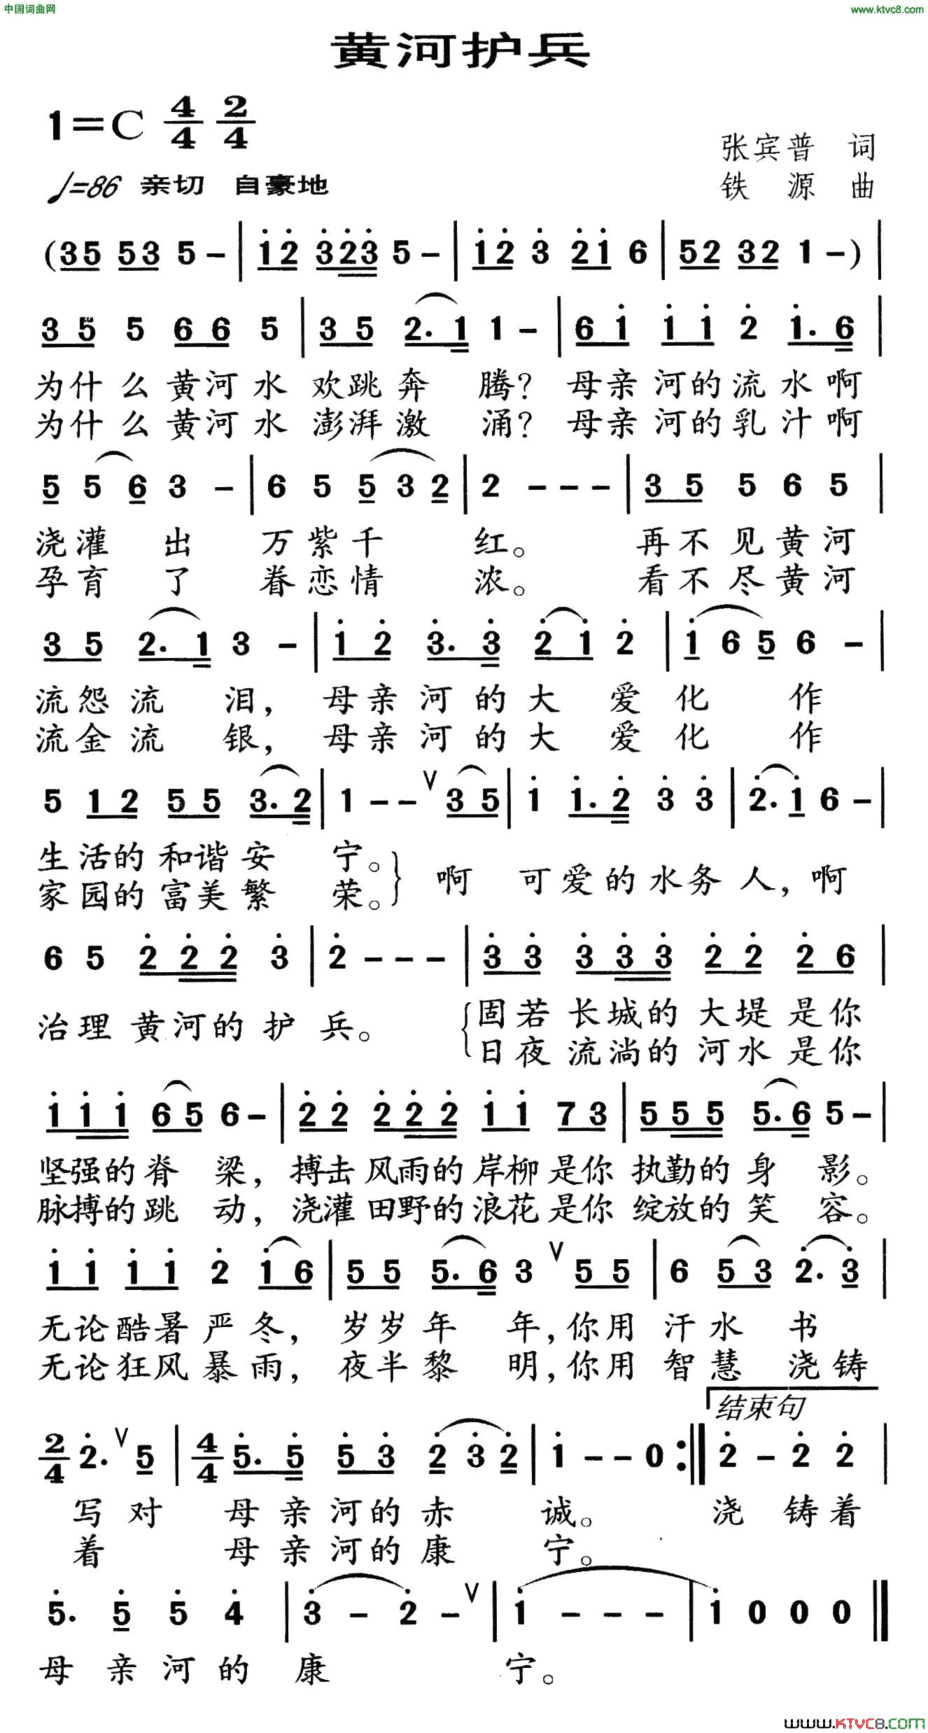 中国词曲网 www.ktvc8.com
黄河护兵
1=C 4/4 2/4
张宾普 词
♩=86 亲切 自豪地
铁源 曲
(35 53 5 - | i2 323 5 - | i2 3 2i 6 | 52 32 1 -) |
35 5 66 5 | 35 2.1 1 - | 6i ii 2 i.6 |
为什么黄河水欢跳奔腾?母亲河的流水啊
为什么黄河水澎湃激涌?母亲河的乳汁啊
5 5 6 3 - | 6 5 5 3 2 | 2 - - - | 35 5 6 5 |
浇灌出万紫千红。再不见黄河
孕育了眷恋情浓。看不尽黄河
35 2.1 3 - | i2 3.3 2i 2 | i 6 5 6 - |
流怨流泪,母亲河的大爱化作
流金流银,母亲河的大爱化作
5 12 55 3.2 | 1 - - ∨ 35 | i i.2 33 | 2.i 6 - |
生活的和谐安宁。
家园的富美繁荣。} 啊 可爱的水务人,啊
6 5 222 3 | 2 - - - | 33 333 22 26 |
治理黄河的护兵。{固若长城的大堤是你
日夜流淌的河水是你
iii 65 6 - | 22 222 ii 73 | 555 5.6 5 - |
坚强的脊梁,搏击风雨的岸柳是你执勤的身影。
脉搏的跳动,浇灌田野的浪花是你绽放的笑容。
ii ii 2 i6 | 55 5.6 3 ∨ 55 | 6 53 2. 3 |
无论酷暑严冬,岁岁年年,你用汗水书
无论狂风暴雨,夜半黎明,你用智慧浇铸
结束句
2/4 2. ∨ 5 | 4/4 5.5 53 2 3 2 | i - - 0 :| 2 - 2 2 |
写对母亲河的赤诚。浇铸着
着母亲河的康宁。
5. 5 5 4 | 3 - 2 - ∨ | i - - - | i 0 0 0 ‖
母亲河的康宁。
www.KTVC8.com